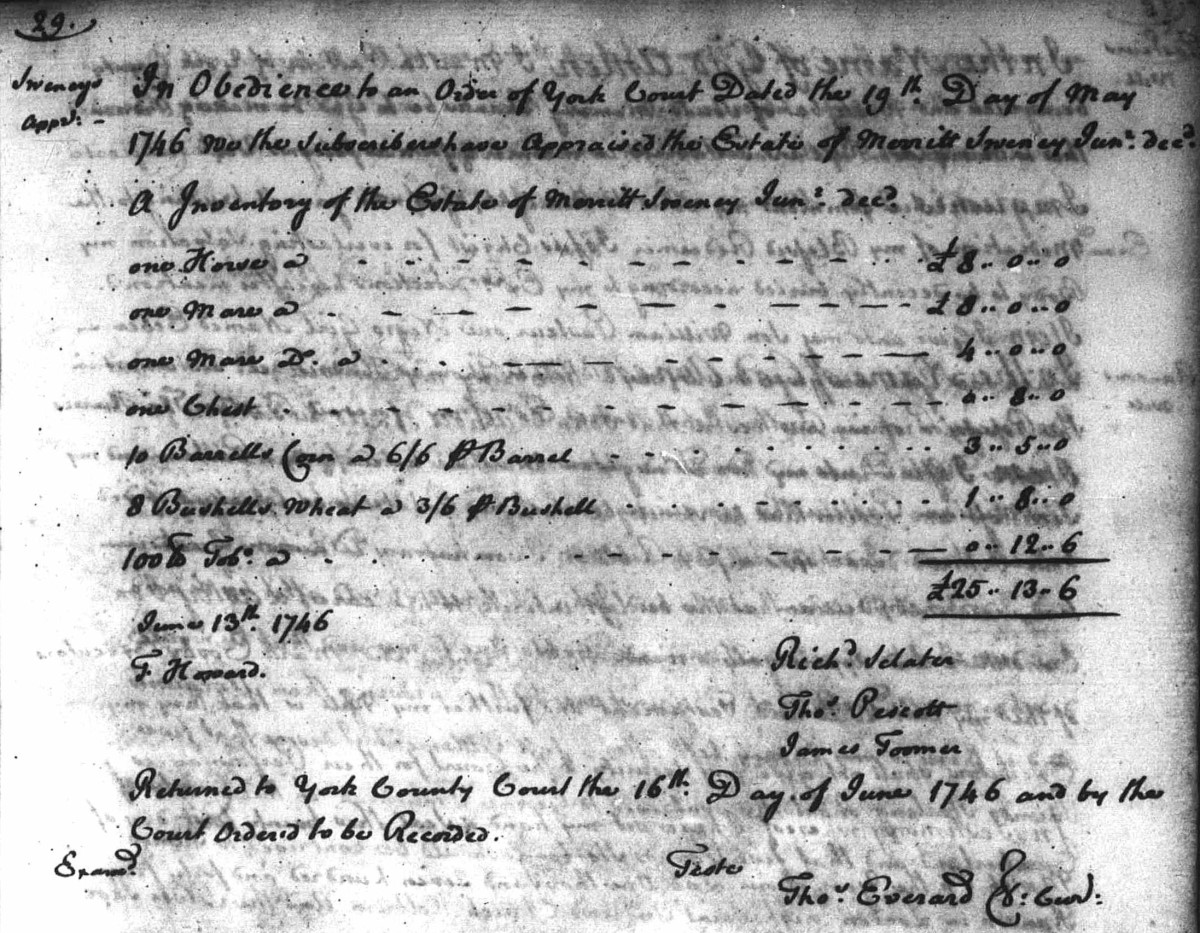 29.
Sweneys
Appr: -
In Obedience to an Order of York Court Dated the 19th. Day of May
1746 We the Subscribers have Appraised the Estate of Merritt Sweney Junr. decd.
A Inventory of the Estate of Merritt Sweney Junr. decd.
one Horse a - - - - - - - - - - £8.. 0.. 0
one Mare a - - - - - - - - - - £8.. 0.. 0
one Mare Do. a - - - - - - - - - 4.. 0.. 0
one Chest - - - - - - - - - - 0.. 8.. 0
10 Barrells Corn a 6/6 ⅌ Barrel - - - - - - - 3.. 5.. 0
8 Bushells Wheat a 3/6 ⅌ Bushell - - - - - - - 1.. 8.. 0
100 lb Tobo. a - - - - - - - - - - 0.. 12.. 6
£25.. 13.. 6
June 13th. 1746
F Howard.
Richd. Sclater
Thos. Pescott
James Toomer
Returned to York County Court the 16th. Day of June 1746 and by the
Court Ordered to be Recorded.
Examd.
Teste
Thos. Everard Cur: